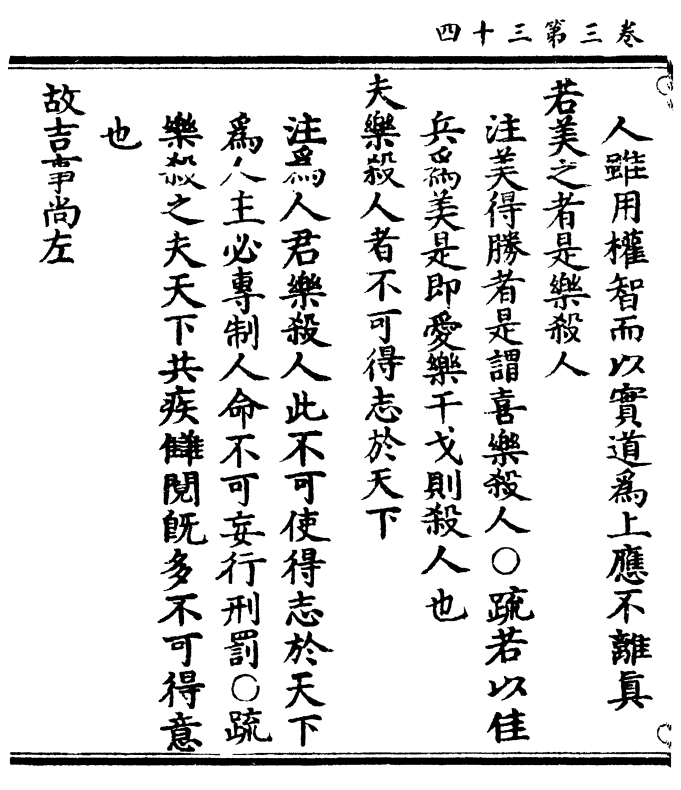 卷三第三十四
人雖用權智而以實道爲上應不離眞
若美之者是樂殺人
注美得勝者是謂喜樂殺人〇疏若以佳
兵爲美是即愛樂干戈則殺人也
夫樂殺人者不可得志於天下
注爲人君樂殺人此不可使得志於天下
爲人主必專制人命不可妄行刑罰〇疏
樂殺之夫天下共疾讎閱旣多不可得意
也
故吉事尚左